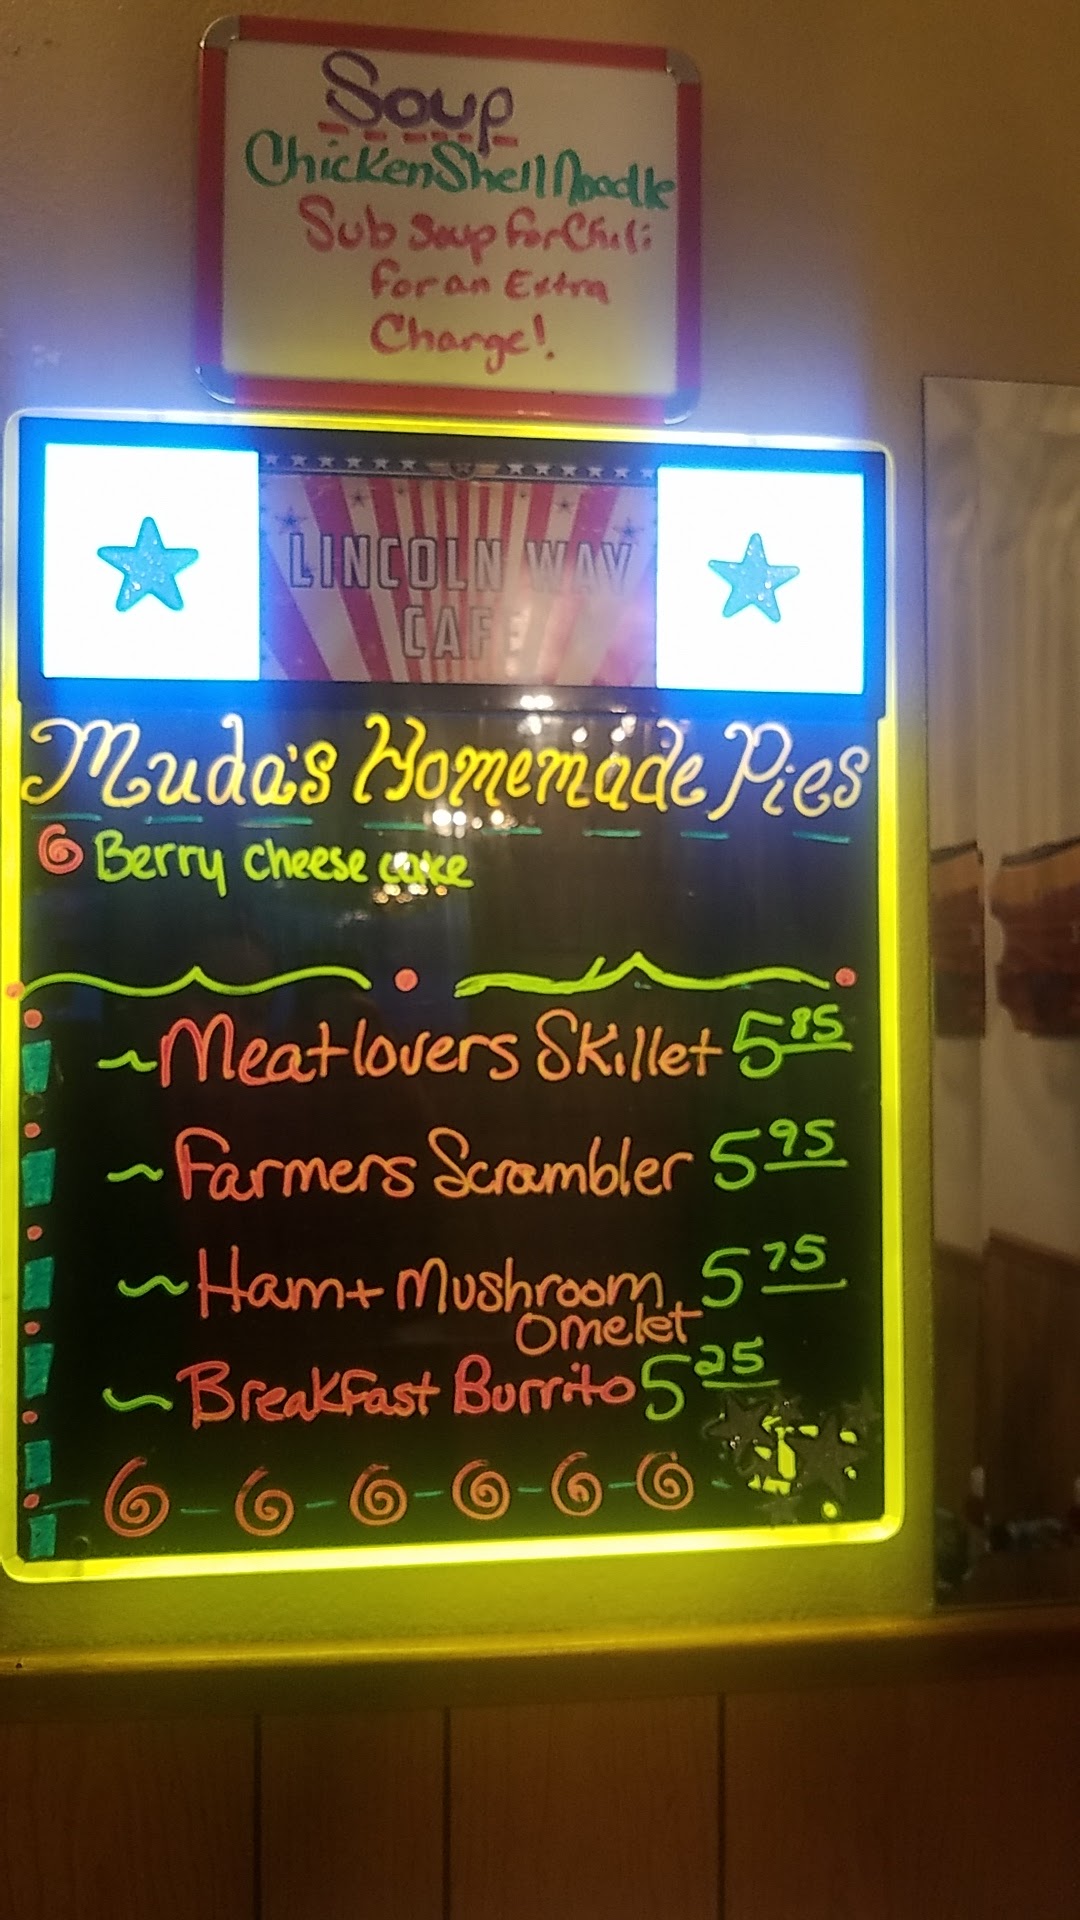 Soup
Chicken Shell Noodle
Sub Soup for Chili
for an Extra
Charge!
LINCOLN WAY
CAFE
Muda's Homemade Pies
Berry cheese cake
~Meatlovers Skillet 5 85
~Farmers Scrambler 5 95
~Ham + Mushroom 5 75
Omelet
~Breakfast Burrito 5 25